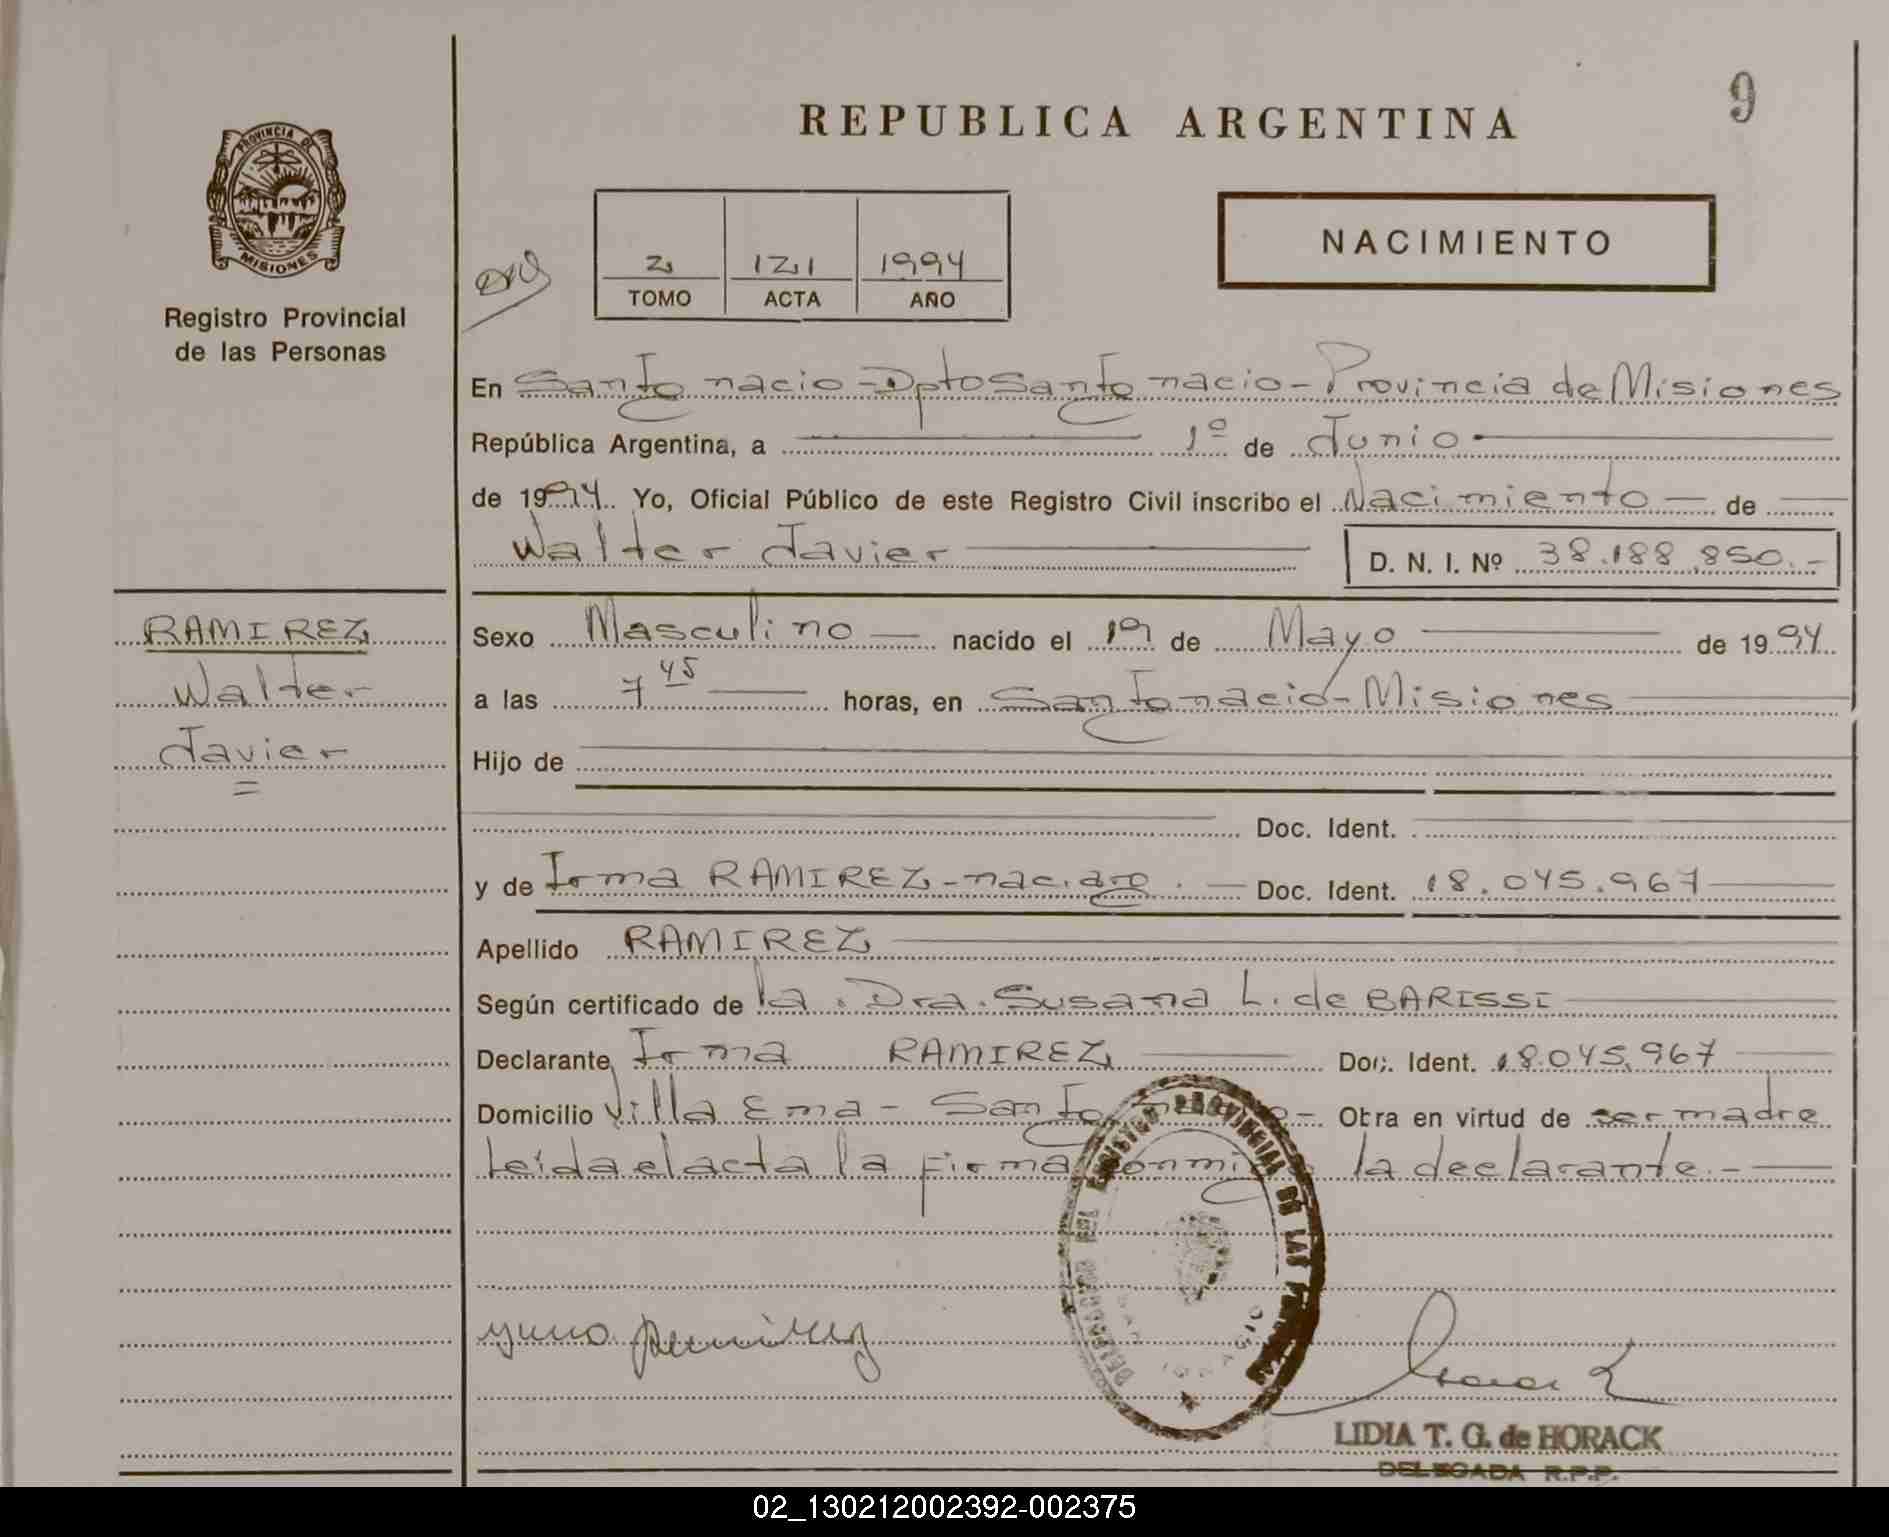 9
REPUBLICA ARGENTINA
PROVINCIA DE
MISIONES
Registro Provincial
de las Personas
NACIMIENTO
2 121 1994
TOMO ACTA AÑO
En San Ignacio - Dpto San Ignacio - Provincia de Misiones
República Argentina, a 1º de Junio
de 1994. Yo, Oficial Público de este Registro Civil inscribo el Nacimiento de
Walter Javier D. N. I. Nº 38.188.850.-
RAMIREZ
Walter
Javier
Sexo Masculino nacido el 19 de Mayo de 1994
a las 7 45 horas, en San Ignacio - Misiones
Hijo de
Doc. Ident.
y de Irma RAMIREZ - nac. arg. Doc. Ident. 18.045.967
Apellido RAMIREZ
Según certificado de la Dra. Susana L. de BARISSI
Declarante Irma RAMIREZ Doc. Ident. 18.045.967
Domicilio Villa Ema - San Ignacio - Obra en virtud de ser madre
Leída el acta la firma conmigo la declarante.-
REGISTRO PROVINCIAL DE LAS PERSONAS
LIDIA T. G. de HORACK
DELEGADA R.P.P.
02_130212002392-002375